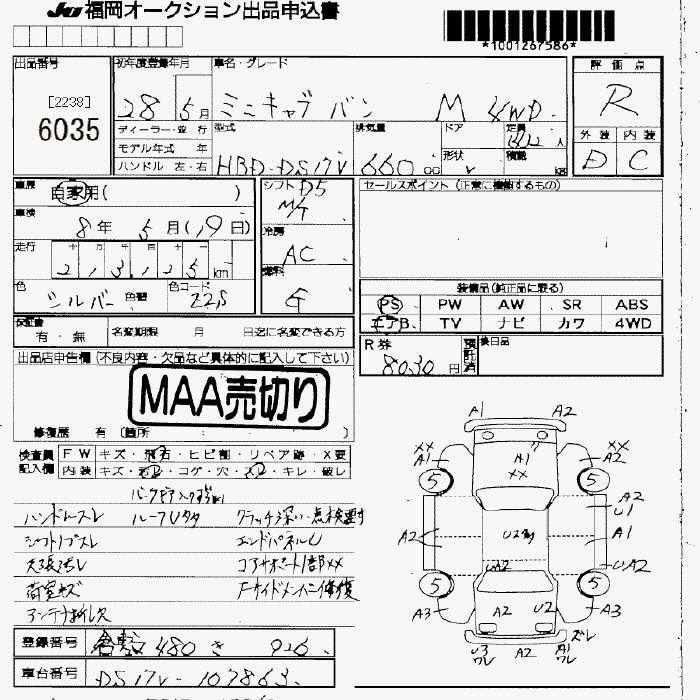 JU 福岡オークション出品申込書
*1001267586*
出品番号 初年度登録年月 車名・グレード 評価点
[2238]
6035
28 5月 ミニキャブ バン M 4WD R
ディーラー・並行 型式 排気量 ドア 定員 人 外装 内装
モデル年式 年 形状 積載
ハンドル 左・右 HBD-DS17V 660 cc V kg D C
車歴 自家用( ) シフト D5 セールスポイント (正常に機能するもの)
M/T
車検 8年 5月(19日) 冷房
走行 十 万 千 百 十 AC
2 3 1 2 5 km 燃料
色 シルバー 色替 色コード 22S G 装備品(純正品に限る)
PS PW AW SR ABS
エアB TV ナビ カワ 4WD
保証書 有・無 名変期限 月 日迄に名変できる方 R券 8030円 預託済 後日品
出品店申告欄 (不良内容・欠品など具体的に記入して下さい)
MAA売切り
修復歴 有 (箇所 )
検査員 FW キズ・飛石・ヒビ割・リペア跡・X要
記入欄 内装 キズ・汚レ・コゲ・穴・スレ・キレ・破レ
ハンドルスレ ルーフUタタ クラッチ深い・点検要す
シフトノブスレ エンドパネルU
天張汚レ コアサポート1部XX
荷室キズ Fサイドメンバー修復
アンテナ折レ欠
登録番号 倉敷 480 き 926
車台番号 DS17V-107863
A1 A2
XX A1 A1 XX XX A2
5 5
A2 U1
A2 A1
UA2 UA2
5 5
A3 A2 U2 A3
U3 ワレ A2 A1 ワレ ズレ